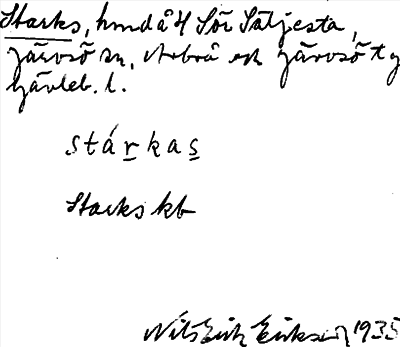 Starks, hmd å 4 Sör Sätjesta,
Järvsö sn, Arbrå och Järvsö tg
Gävleb. l.
stárkas
Starks kb
Nils Erik Eriksson 1935